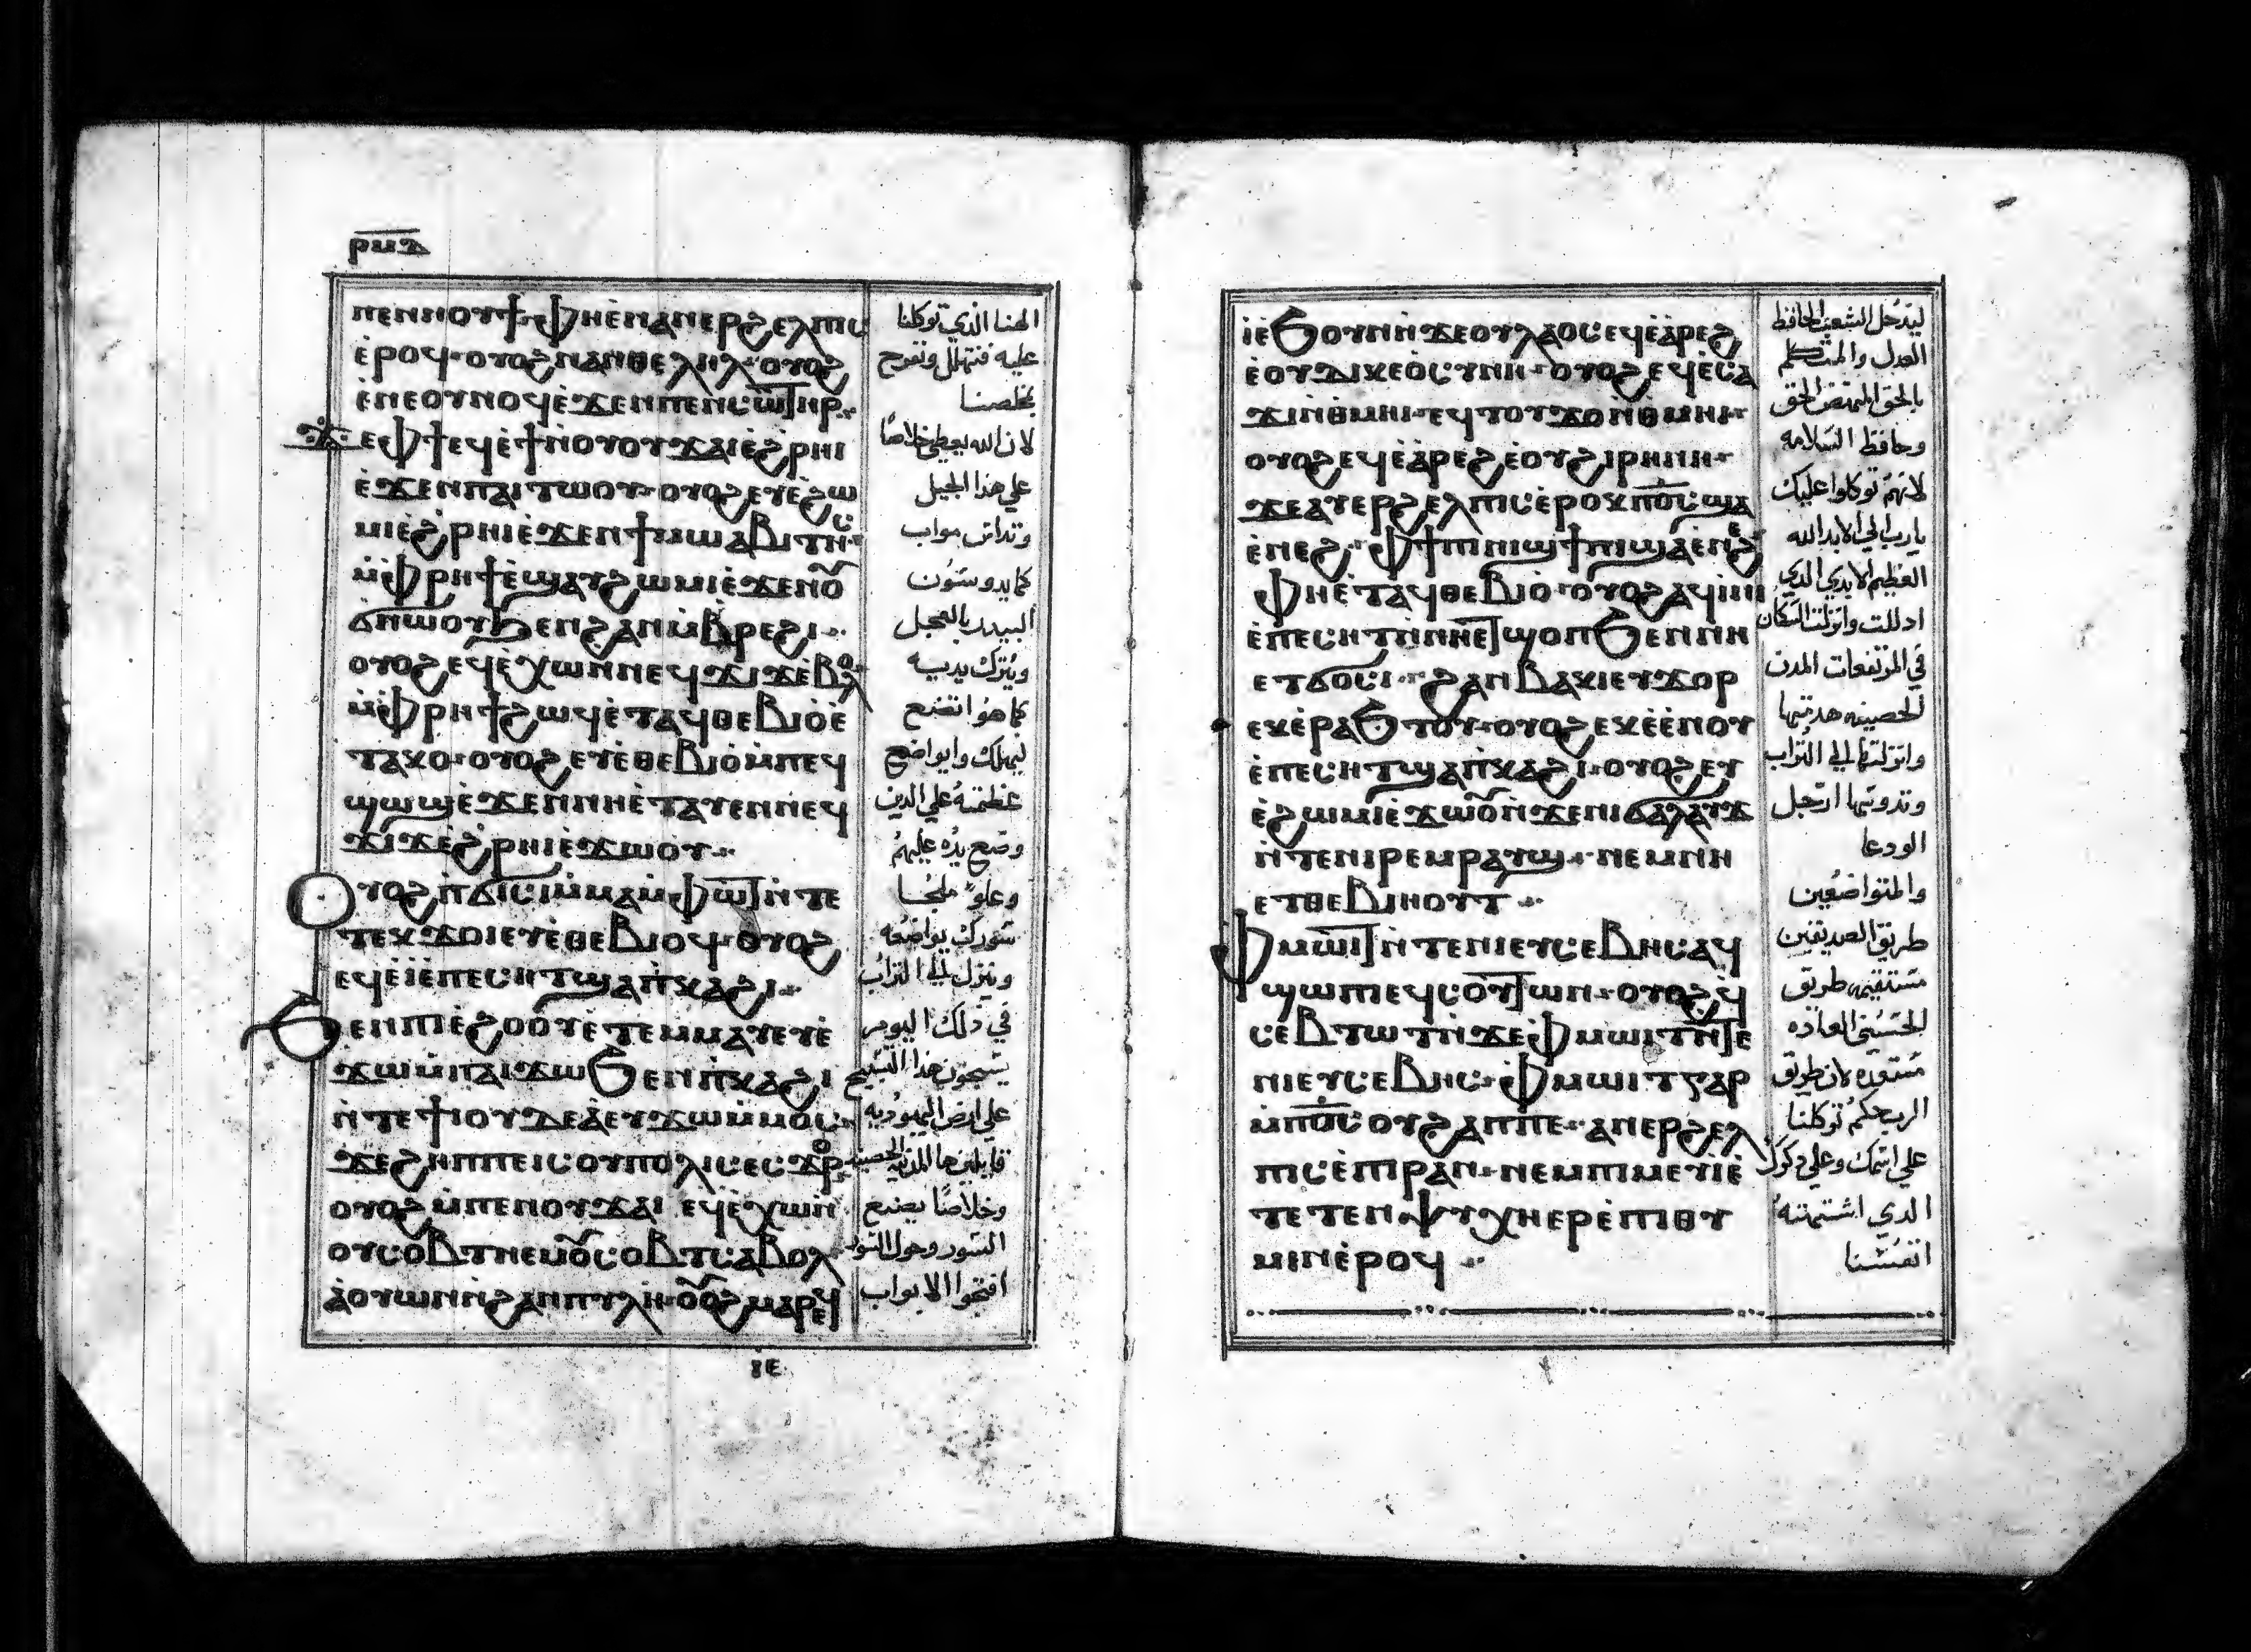 ⲣⲙⲇ
ⲡⲉⲛⲛⲟⲩϯ ⲫⲏⲉ̀ⲛⲁⲛⲉⲣϩⲉⲗⲡⲓⲥ
ⲉ̀ⲣⲟϥ ⲟⲩⲟϩ ⲛⲁⲛⲑⲉⲗⲏⲗ ⲟⲩⲟϩ
ⲉ̀ⲛⲉⲟⲩⲛⲟϥ ⲉ̀ϫⲉⲛⲡⲉⲛⲥⲱⲧⲏⲣ
ϫⲉⲫϯ ⲉϥⲉ̀ϯⲛ̀ⲟⲩⲟⲩϫⲁⲓ ⲉ̀ϩⲣⲏⲓ
ⲉ̀ϫⲉⲛⲡⲁⲓⲧⲱⲟⲩ ⲟⲩⲟϩ ⲉⲩⲉ̀ϩⲱ
ⲙⲓ ⲉ̀ϩⲣⲏⲓ ⲉ̀ϫⲉⲛϯⲙⲱⲁⲃⲓⲧⲏⲥ
ⲙ̀ⲫⲣⲏϯ ⲉ̀ϣⲁⲩϩⲱⲙⲓ ⲉ̀ϫⲉⲛⲟ
ϭⲛⲱⲟⲩ ϧⲉⲛϩⲁⲛⲙ̀ⲃⲣⲉϩⲓ
ⲟⲩⲟϩ ⲉϥⲉ̀ⲭⲱ ⲛⲛⲉϥϫⲓϫ ⲉ̀ⲃⲟⲗ
ⲙ̀ⲫⲣⲏϯ ϩⲱϥ ⲉ̀ⲧⲁϥⲑⲉⲃⲓⲟ ⲉ̀
ⲧⲁⲕⲟ ⲟⲩⲟϩ ⲉⲩⲉ̀ⲑⲉⲃⲓⲟ ⲙ̀ⲡⲉϥ
ϣⲱϣ ⲉ̀ϫⲉⲛⲛⲏ ⲉ̀ⲧⲁⲩⲉⲛⲛⲉϥ
ϫⲓϫ ⲉ̀ϩⲣⲏⲓ ⲉ̀ϫⲱⲟⲩ
ⲟⲩⲟϩ ⲡ̀ϭⲓⲥⲓ ⲙ̀ⲙⲁⲙ̀ⲫⲱⲧ ⲛ̀ⲧⲉ
ⲧⲉⲕϫⲟⲓ ⲉⲩⲉ̀ⲑⲉⲃⲓⲟϥ ⲟⲩⲟϩ
ⲉϥⲉ̀ⲓ̀ ⲉ̀ⲡⲉⲥⲏⲧ ϣⲁⲡ̀ⲕⲁϩⲓ
ϧⲉⲛⲡⲓⲉ̀ϩⲟⲟⲩ ⲉ̀ⲧⲉⲙⲙⲁⲩ ⲉⲩⲉ̀
ϫⲱ ⲙ̀ⲡⲁⲓϫⲱ ϧⲉⲛⲡ̀ⲕⲁϩⲓ
ⲛ̀ⲧⲉϯⲓⲟⲩⲇⲉⲁ̀ ⲉⲩϫⲱ ⲙ̀ⲙⲟⲥ
ϫⲉϩⲏⲡⲡⲉ ⲓⲥ ⲟⲩⲡⲟⲗⲓⲥ ⲉⲥϫⲟⲣ
ⲟⲩⲟϩ ⲙ̀ⲡⲉⲛⲟⲩϫⲁⲓ ⲉϥⲉ̀ⲭⲱ ⲛ̀
ⲟⲩⲥⲟⲃⲧ ⲛⲉⲙ ⲟⲩⲥⲟⲃⲧ ⲥⲁⲃⲟⲗ
ⲁ̀ⲟⲩⲱⲛ ⲛ̀ϩⲁⲛⲡⲩⲗⲏ ⲟⲩⲟϩ ⲙⲁⲣⲉϥ
ⲓⲉ
الهنا الذي توكلنا
عليه فنتهلل ونفرح
بخلصنا
لان الله يعطي خلاصًا
علي هذا الجبل
وتداس مواب
كما يدوسون
البيدر بالعجل
ويترك يديه
كما هو اتضع
ليهلك وايواضع
عظمته علي الدين
وضع يده عليهم
وعلو ملجا
سورك يواضعه
وينزل الي التراب
في ذلك اليوم
يسبحون هذا التسبيح
علي ارض اليهوديه
قايلين ها المدينه الحصينه
وخلاصًا يصنع
السور وحول السور
افتحوا الابواب
ⲓ̀ ⲉ̀ϧⲟⲩⲛ ⲛ̀ϫⲉⲟⲩⲗⲁⲟⲥ ⲉϥⲉ̀ⲁ̀ⲣⲉϩ
ⲉ̀ⲟⲩⲇⲓⲕⲉⲟ̀ⲥⲩⲛⲏ ⲟⲩⲟϩ ⲉϥⲉ̀ⲥⲁ
ϫⲓ ⲛ̀ⲑⲙⲏⲓ ⲉϥⲧⲟⲩϫⲟ ⲛ̀ⲑⲙⲏⲓ
ⲟⲩⲟϩ ⲉϥⲉ̀ⲁ̀ⲣⲉϩ ⲉ̀ⲟⲩϩⲓⲣⲏⲛⲏ
ϫⲉⲁⲩⲉⲣϩⲉⲗⲡⲓⲥ ⲉ̀ⲣⲟⲕ ⲡⲟ̅ⲥ̅ ϣⲁ
ⲉ̀ⲛⲉϩ ⲫϯ ⲡⲓⲛⲓϣϯ ⲡⲓϣⲁⲉ̀ⲛⲉϩ
ⲫⲏ ⲉ̀ⲧⲁϥⲑⲉⲃⲓⲟ̀ ⲟⲩⲟϩ ⲁϥⲓⲛⲓ
ⲉ̀ⲡⲉⲥⲏⲧ ⲛ̀ⲛⲏ ⲉⲧϣⲟⲡ ϧⲉⲛⲛⲏ
ⲉⲧϭⲟⲥⲓ ϩⲁⲛⲃⲁⲕⲓ ⲉⲩϫⲟⲣ
ⲉⲕⲉ̀ⲣⲁϧⲧⲟⲩ ⲟⲩⲟϩ ⲉⲕⲉ̀ⲉ̀ⲛⲟⲩ
ⲉ̀ⲡⲉⲥⲏⲧ ϣⲁⲡ̀ⲕⲁϩⲓ ⲟⲩⲟϩ ⲉⲩ
ⲉ̀ϩⲱⲙⲓ ⲉ̀ϫⲱⲟⲩ ⲛ̀ϫⲉⲛⲓϭⲁⲗⲁⲩϫ
ⲛ̀ⲧⲉⲛⲓⲣⲉⲙⲣⲁⲩϣ ⲛⲉⲙ ⲛⲏ
ⲉⲧⲑⲉⲃⲓⲏⲟⲩⲧ
ⲫⲙⲱⲓⲧ ⲛ̀ⲧⲉⲛⲓⲉⲩⲥⲉⲃⲏⲥ ⲁϥ
ϣⲱⲡⲓ ⲉϥⲥⲟⲩⲧⲱⲛ ⲟⲩⲟϩ ϥ
ⲥⲉⲃⲧⲱⲧ ⲛ̀ϫⲉⲫⲙⲱⲓⲧ ⲛ̀ⲧⲉ
ⲛⲓⲉⲩⲥⲉⲃⲏⲥ ⲫⲙⲱⲓⲧ ⲅⲁⲣ
ⲙ̀ⲡⲟ̅ⲥ̅ ⲟⲩϩⲁⲡ ⲡⲉ ⲁⲛⲉⲣϩⲉⲗ
ⲡⲓⲥ ⲉ̀ⲡⲓⲣⲁⲛ ⲛⲉⲙ ⲡⲓⲙⲉⲩⲓ ⲉ̀
ⲧⲉ ⲧⲉⲛⲯⲩⲭⲏ ⲉⲣⲉ̀ⲡⲓⲑⲩ
ⲙⲓⲛ ⲉ̀ⲣⲟϥ
ليدخل الشعب الحافظ
العدل والمتكلم
بالحق الحق
وحافظ السلامه
لانهم توكلوا عليك
يا رب الي الابد الله
العظيم الابدي الدي
ادللت وانزلت السكان
في المرتفعات المدن
الحصينه هدمتها
وانزلتها الي التراب
وتدوسها ارجل
الودعا
والمتواضعين
طريق الصديقين
مستقيمه طريق
مستعده لان طريق
الرب حكم توكلنا
علي اسمك وعلي دكرك
الدي اشتهته
انفسنا